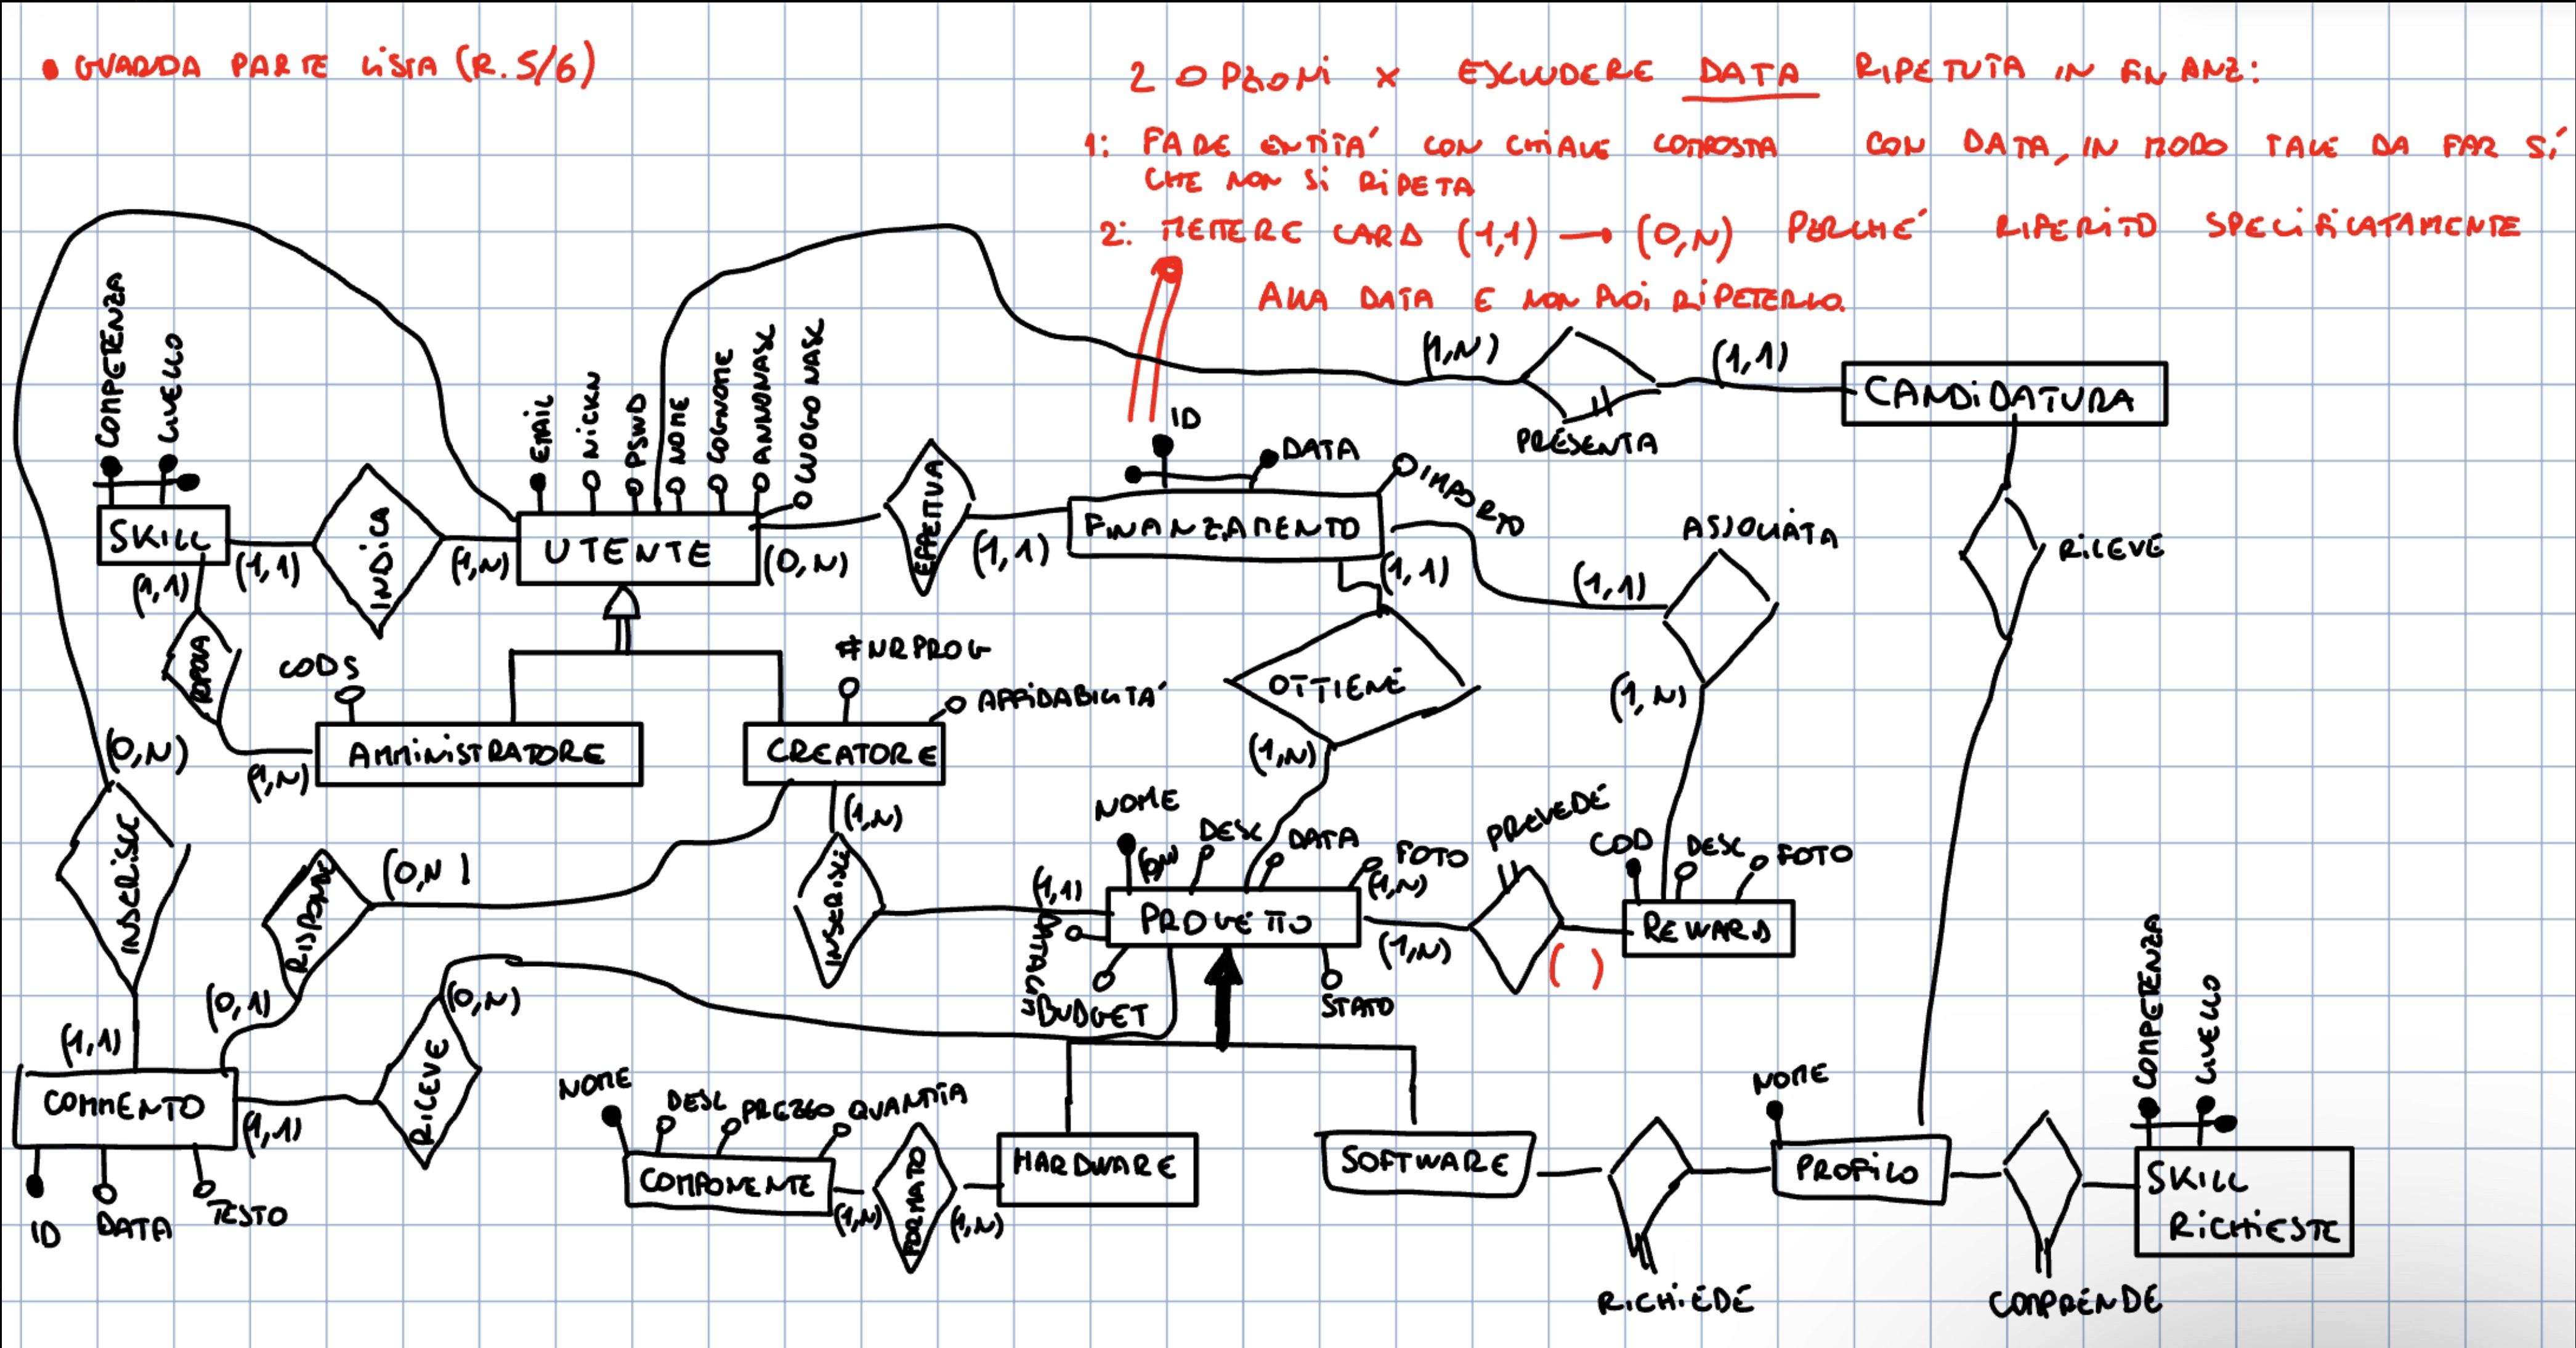 • GUARDA PARTE LISTA (R. 5/6)
2 OPZIONI X ESCLUDERE DATA RIPETUTA IN FINANZ:
1: FARE ENTITA' CON CHIAVE COMPOSTA CON DATA, IN MODO TALE DA FAR SI'
CHE NON SI RIPETA
2: METTERE CARD (1,1) → (0,N) PERCHE' RIFERITO SPECIFICATAMENTE
ALLA DATA E NON PUOI RIPETERLO.
COMPETENZA
LIVELLO
SKILL
(1,1)
(1,1)
INDICA
(1,N)
EMAIL
NICKN
PSWD
NOME
COGNOME
ANNONASC
LUOGO NASC
UTENTE
(0,N)
EFFETTUA
(1,1)
ID
DATA
IMPORTO
FINANZAMENTO
(1,1)
(1,N)
PRESENTA
(1,1)
CANDIDATURA
RICEVE
ASSOCIATA
(1,1)
(1,N)
OTTIENE
(1,N)
POPOLA
(1,N)
CODS
AMMINISTRATORE
#NRPROG
AFFIDABILITA'
CREATORE
(1,N)
(0,N)
INSERISCE
(1,1)
RISPONDE
(0,N)
(0,1)
INSERISCE
(1,1)
NOME
DESC
DATA
FOTO
(1,N)
PROGETTO
BUDGET
STATO
(1,N)
PREVEDE
( )
COD
DESC
FOTO
REWARD
COMMENTO
(1,1)
RICEVE
(0,N)
ID
DATA
TESTO
NOME
DESC
PREZZO
QUANTITA
COMPONENTE
(1,N)
FORMATO
(1,N)
HARDWARE
SOFTWARE
RICHIEDE
NOME
PROFILO
COMPRENDE
COMPETENZA
LIVELLO
SKILL
RICHIESTE